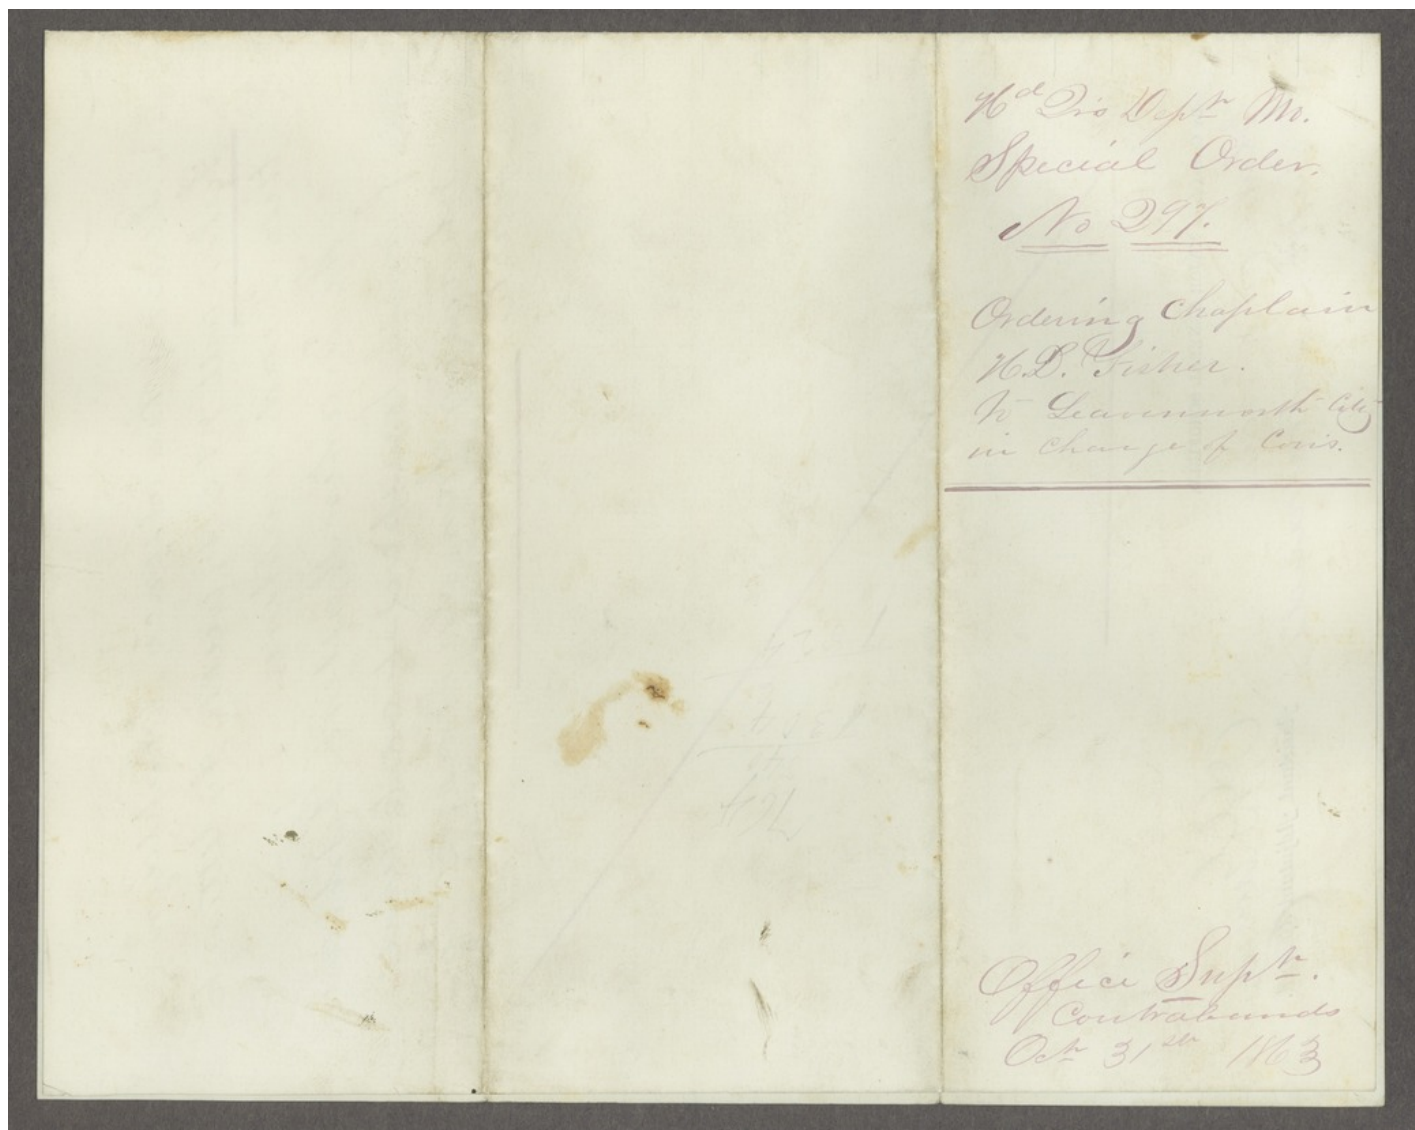 Hd Qrs Dept Mo.
Special Order.
No 297.
Ordering Chaplain
H.D. Fisher.
to Leavenworth City
in charge of Cons.
Office Supt.
Contrabands
Oct 31st 1863